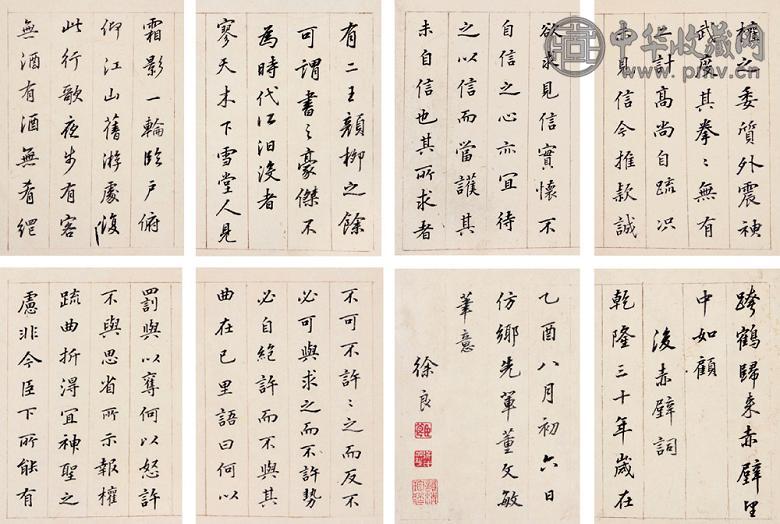 權之委質外震神
武度其拳〻無有
二計高尚自疏況
未見信今推款誠
欲求見信實懷不
自信之心亦宜待
之以信而當護其
未自信也其所求者
有二王顏柳之餘
可謂書之豪傑不
為時代江汨没者
寥天木下雪堂人見
霜影一輪臨戶俯
仰江山舊游處復
此行歌夜步有客
無酒有酒無肴網
跨鶴歸來赤壁望
中如顧
後赤壁詞
乾隆三十年歲在
乙酉八月初六日
仿鄉先輩董文敏
筆意
徐良
不可不許〻之而反不
必可與求之而不許勢
必自絕許而不與其
曲在己里語曰何以
罰與以奪何以怒許
不與思省所示報權
疏曲折得宜神聖之
慮非今臣下所能有
中华收藏网
www.pmv.cn